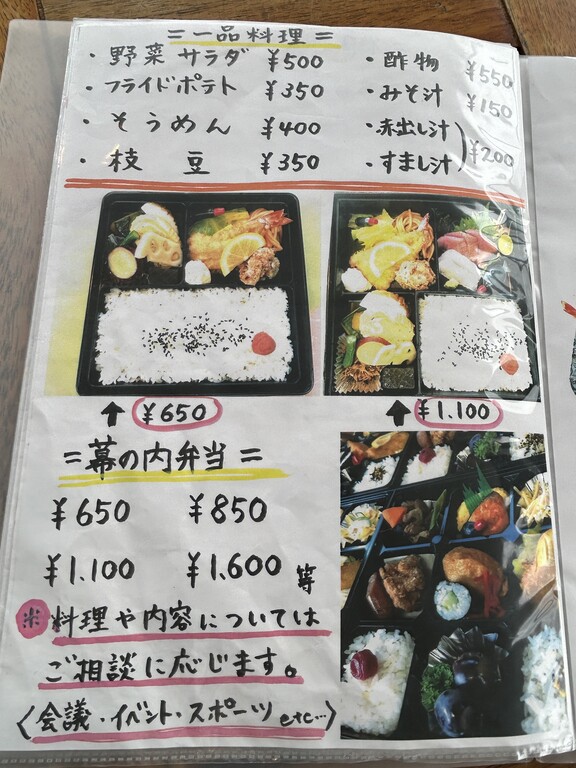 =一品料理=
・野菜サラダ ¥500 ・酢物 ¥550
・フライドポテト ¥350 ・みそ汁 ¥150
・そうめん ¥400 ・赤出し汁
・枝豆 ¥350 ・すまし汁 ) ¥200
↑ ¥650 ↑ ¥1.100
=幕の内弁当=
¥650 ¥850
¥1.100 ¥1.600 等
※料理や内容については
ご相談に応じます。
〈会議・イベント・スポーツ etc…〉